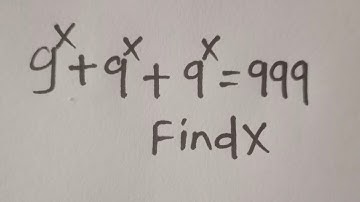 9^x + 9^x + 9^x = 999
Find X